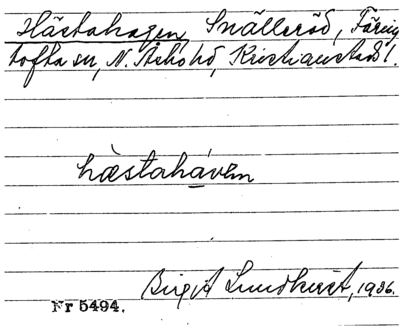 Hästahagen, Snälleröd, Färing
tofta sn, N. Åsbo hd, Kristianstads l.
hæstahávεn
Birgit Lundkvist, 1936.
Nr 5494.